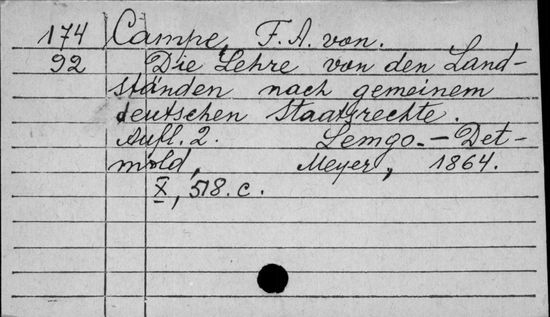 174 Campe, F. A. von.
92 Die Lehre von den Land-
ständen nach gemeinem
deutschen Staatsrechte.
Aufl. 2. Lemgo.-Det-
mold, Meyer, 1864.
X, 518. c.